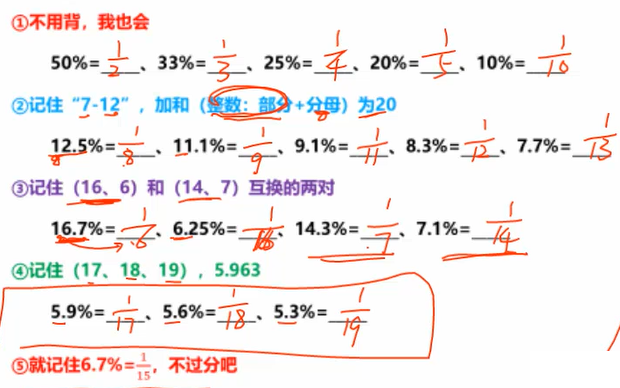 ①不用背，我也会
50%=1/2、33%=1/3、25%=1/4、20%=1/5、10%=1/10
②记住“7-12”，加和（整数：部分+分母）为20
12.5%=1/8、11.1%=1/9、9.1%=1/11、8.3%=1/12、7.7%=1/13
③记住（16、6）和（14、7）互换的两对
16.7%=1/6、6.25%=1/16、14.3%=1/7、7.1%=1/14
④记住（17、18、19），5.963
5.9%=1/17、5.6%=1/18、5.3%=1/19
⑤就记住6.7%=1/15，不过分吧